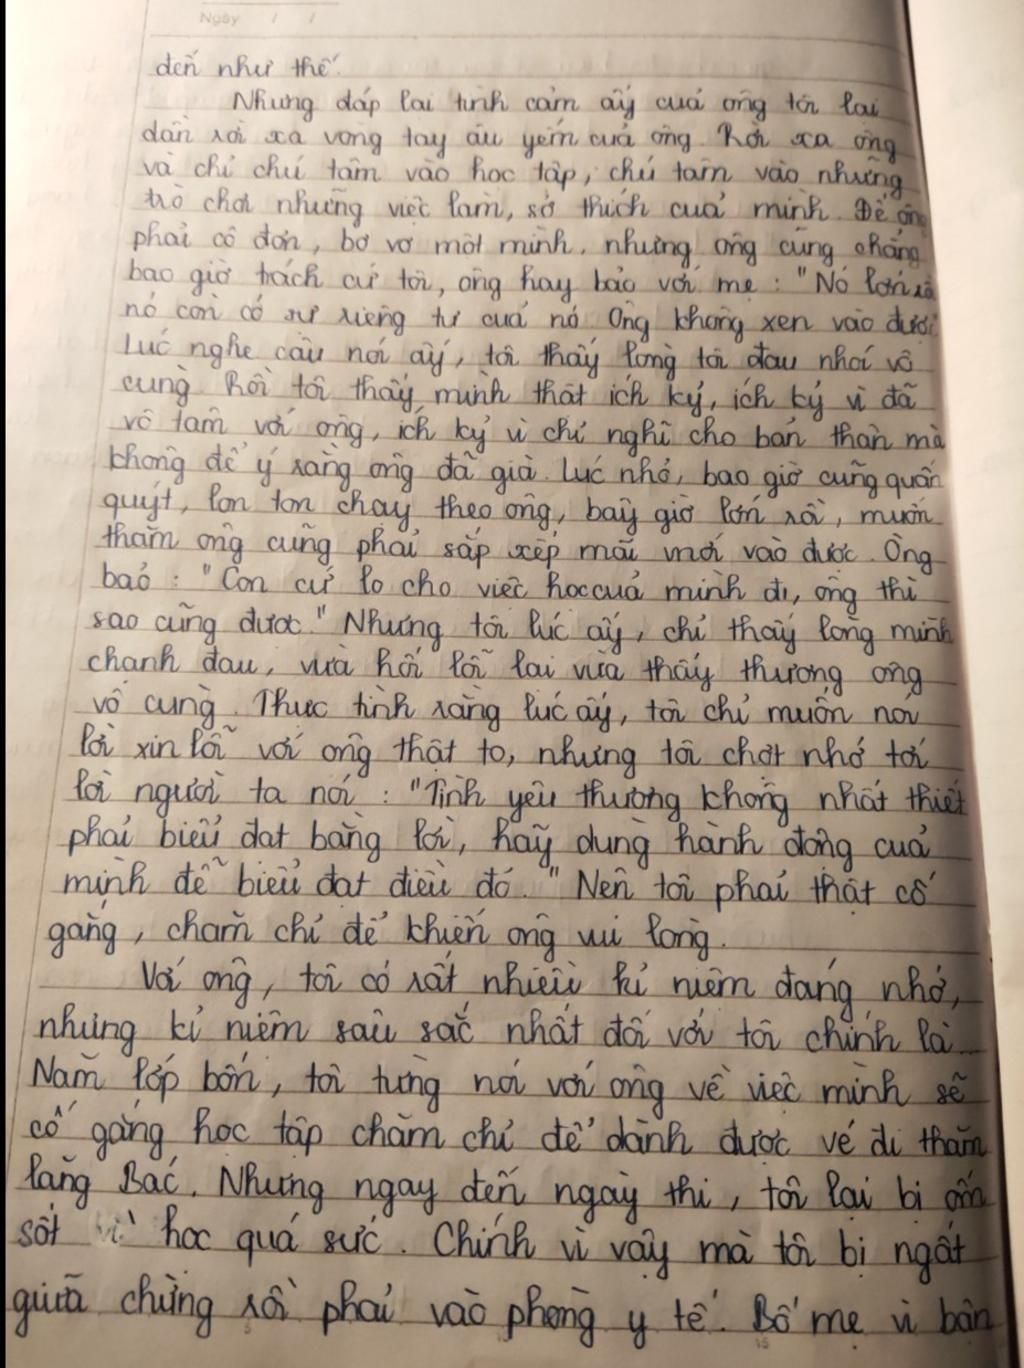 Ngày / /
đến như thế.
Nhưng đáp lại tình cảm ấy của ông tôi lại
dần rời xa vòng tay âu yếm của ông. Rời xa ông
và chỉ chú tâm vào học tập, chú tâm vào những
trò chơi những việc làm, sở thích của mình. Để ông
phải cô đơn, bơ vơ một mình. nhưng ông cũng chẳng
bao giờ trách cứ tôi, ông hay bảo với mẹ : "Nó lớn rồi
nó còn có sự riêng tư của nó Ông không xen vào được
Lúc nghe câu nói ấy, tôi thấy lòng tôi đau nhói vô
cùng Rồi tôi thấy mình thật ích kỷ, ích kỷ vì đã
vô tâm với ông, ích kỷ vì chỉ nghĩ cho bản thân mà
không để ý rằng ông đã già. Lúc nhỏ, bao giờ cũng quấn
quýt, lon ton chạy theo ông, bây giờ lớn rồi, muốn
thăm ông cũng phải sắp xếp mãi mới vào được. Ông
bảo : "Con cứ lo cho việc học của mình đi, ông thì
sao cũng được." Nhưng tôi lúc ấy, chỉ thấy lòng mình
chạnh đau, vừa hối lỗi lại vừa thấy thương ông
vô cùng. Thực tình rằng lúc ấy, tôi chỉ muốn nói
lời xin lỗi với ông thật to, nhưng tôi chợt nhớ tới
lời người ta nói : "Tình yêu thương không nhất thiết
phải biểu đạt bằng lời, hãy dùng hành động của
mình để biểu đạt điều đó." Nên tôi phải thật cố
gắng, chăm chỉ để khiến ông vui lòng.
Với ông, tôi có rất nhiều kỉ niệm đáng nhớ,
nhưng kỉ niệm sâu sắc nhất đối với tôi chính là
Năm lớp bốn, tôi từng nói với ông về việc mình sẽ
cố gắng học tập chăm chỉ để dành được vé đi thăm
lăng Bác. Nhưng ngay đến ngày thi, tôi lại bị ốm
sốt vì học quá sức. Chính vì vậy mà tôi bị ngất
giữa chừng rồi phải vào phòng y tế. Bố mẹ vì bận